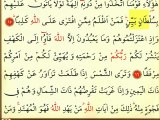 هَٰٓؤُلَآءِ قَوۡمُنَا ٱتَّخَذُواْ مِن دُونِهِۦٓ ءَالِهَةٗۖ لَّوۡلَا يَأۡتُونَ عَلَيۡهِم
بِسُلۡطَٰنِۭ بَيِّنٖۖ فَمَنۡ أَظۡلَمُ مِمَّنِ ٱفۡتَرَىٰ عَلَى ٱللَّهِ كَذِبٗا ١٥
وَإِذِ ٱعۡتَزَلۡتُمُوهُمۡ وَمَا يَعۡبُدُونَ إِلَّا ٱللَّهَ فَأۡوُۥٓاْ إِلَى ٱلۡكَهۡفِ
يَنشُرۡ لَكُمۡ رَبُّكُم مِّن رَّحۡمَتِهِۦ وَيُهَيِّئۡ لَكُم مِّنۡ أَمۡرِكُم
مِّرۡفَقٗا ١٦ وَتَرَى ٱلشَّمۡسَ إِذَا طَلَعَت تَّزَٰوَرُ عَن كَهۡفِهِمۡ
ذَاتَ ٱلۡيَمِينِ وَإِذَا غَرَبَت تَّقۡرِضُهُمۡ ذَاتَ ٱلشِّمَالِ وَهُمۡ فِي
فَجۡوَةٖ مِّنۡهُۚ ذَٰلِكَ مِنۡ ءَايَٰتِ ٱللَّهِۗ مَن يَهۡدِ ٱللَّهُ فَهُوَ ٱلۡمُهۡتَدِۖ وَمَن